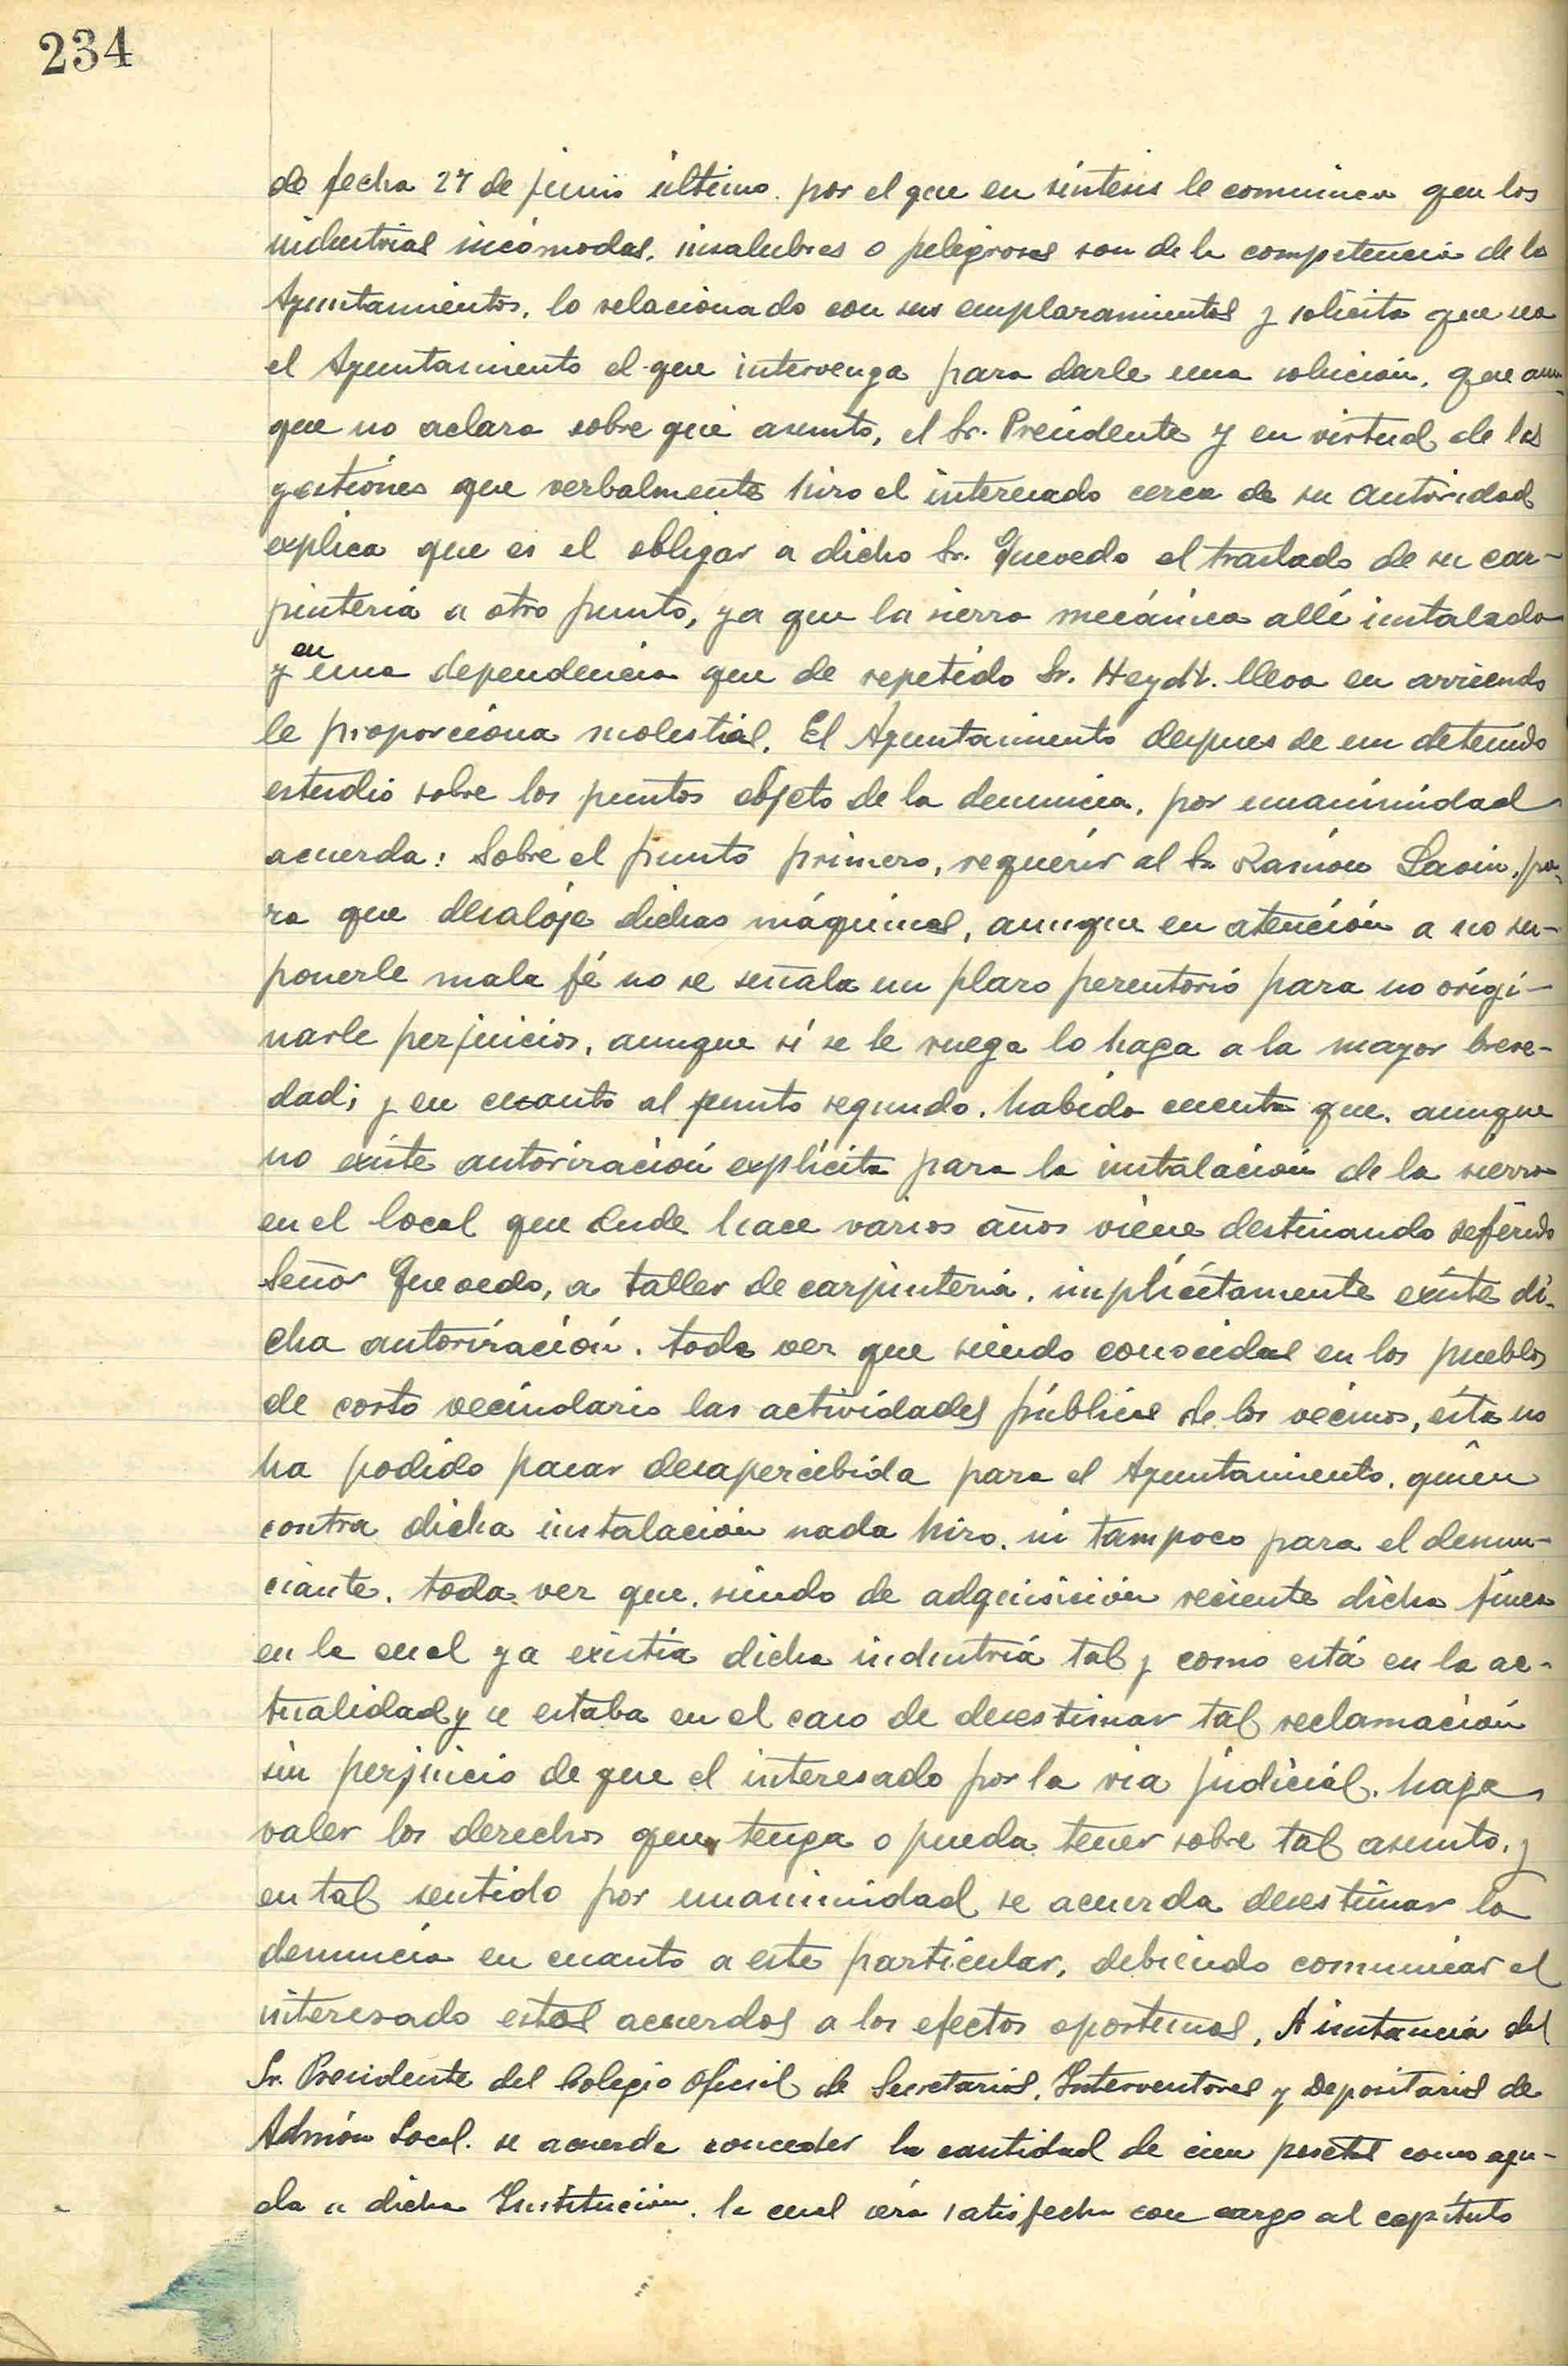 234
de fecha 27 de junio último. por el que en síntesis le comunica que los
industrias incómodas, insalubres o peligrosas son de la competencia de lo
Ayuntamientos, lo relacionado con sus emplazamientos y solicita que sea
el Ayuntamiento el que intervenga para darle una solución, que aun-
que no aclara sobre qué asunto, el Sr. Presidente y en virtud de las
gestiones que verbalmente hizo el interesado cerca de su autoridad
explica que es el obligar a dicho Sr. Quevedo el traslado de su car-
pintería a otro punto, ya que la sierra mecánica allí instalada
y en una dependencia que de repetido Sr. Heydt. lleva en arriendo
le proporciona molestias. El Ayuntamiento despues de un detenido
estudio sobre los puntos objeto de la denuncia, por unanimidad
acuerda: Sobre el punto primero, requerir al Sr. Ramón Lavin, pa-
ra que desaloje dichas máquinas, aunque en atención a no su-
ponerle mala fé no se señala un plazo perentorio para no origi-
narle perjuicios, aunque sí se le ruega lo haga a la mayor breve-
dad; y en cuanto al punto segundo, habida cuenta que, aunque
no existe autorización explícita para la instalación de la sierra
en el local que desde hace varios años viene destinando referido
Señor Quevedo, a taller de carpintería, implícitamente existe di-
cha autorización, toda vez que siendo conocidas en los pueblos
de corto vecindario las actividades públicas de los vecinos, ésta no
ha podido pasar desapercibida para el Ayuntamiento, quien
contra dicha instalación nada hizo, ni tampoco para el denun-
ciante, toda vez que, siendo de adquisición reciente dicha finca
en la cual ya existía dicha industria tal y como está en la ac-
tualidad y se estaba en el caso de desestimar tal reclamación
sin perjuicio de que el interesado por la via judicial, haga
valer los derechos que tenga o pueda tener sobre tal asunto, y
en tal sentido por unanimidad se acuerda desestimar la
denuncia en cuanto a este particular, debiendo comunicar al
interesado estos acuerdos a los efectos oportunos. A instancia del
Sr. Presidente del Colegio Oficial de Secretarios, Interventores y Depositarios de
Admón Local. se acuerda conceder la cantidad de cien pesetas como ayu-
da a dicha Institución, la cual será satisfecha con cargo al capítulo